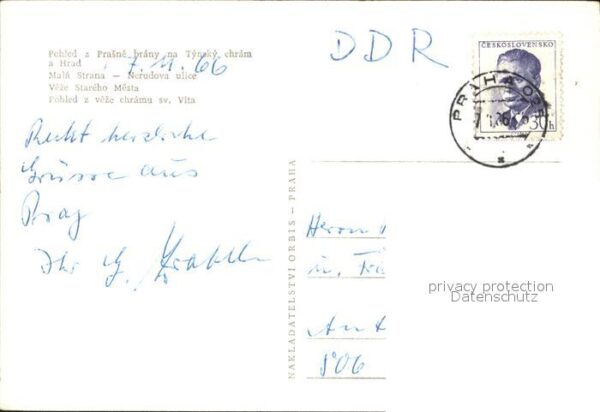 Pohled z Prašné brány na Týnský chrám
a Hrad
Malá Strana — Nerudova ulice
Věže Starého Města
Pohled z věže chrámu sv. Víta
7. 11. 66
Recht herzliche
Grüsse aus
Prag
Ihr G.
NAKLADATELSTVÍ ORBIS — PRAHA
DDR
ČESKOSLOVENSKO
30 h
PRAHA
Herrn
Ant
806
privacy protection
Datenschutz